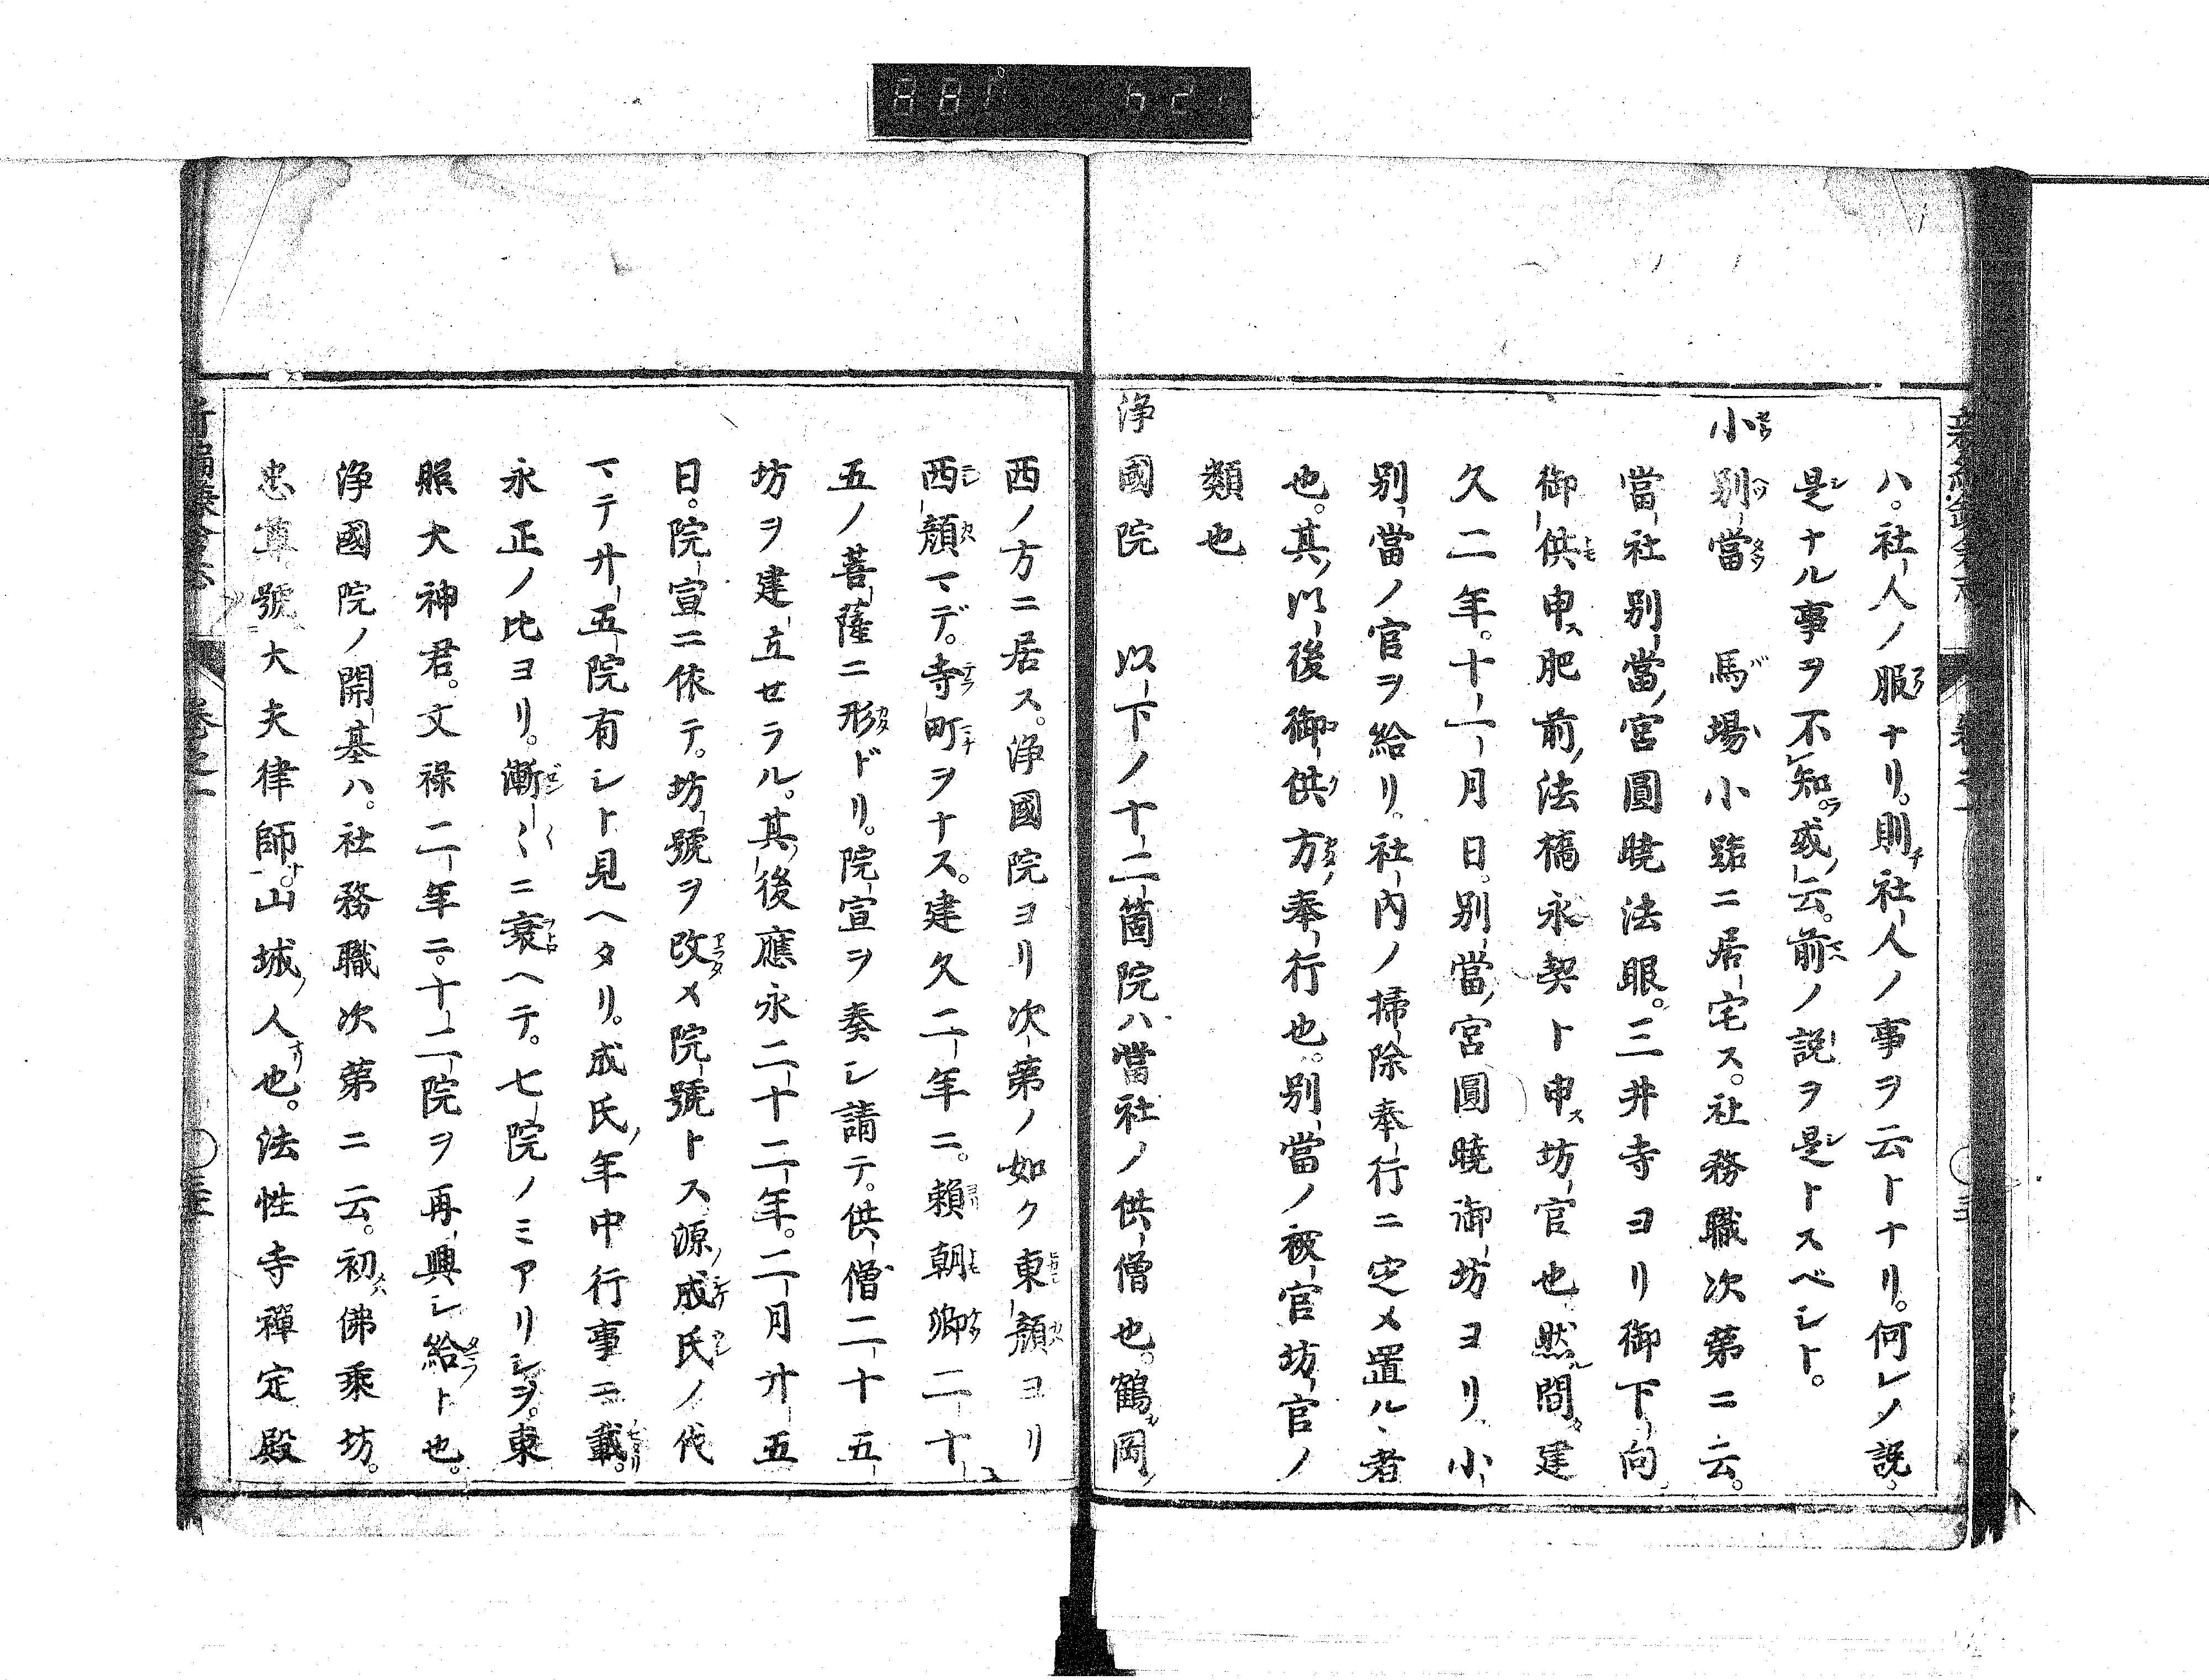 ハ。社人ノ服ナリ。則社人ノ事ヲ云トナリ。何レノ説。
是ナル事ヲ不知。或云。前ノ説ヲ是トスベシト。
小別當 馬場小路ニ居宅ス。社務職次第ニ云。
當社別當宮圓曉法眼。三井寺ヨリ御下向。
御供申ス肥前法橋永契ト申ス坊官也然間建
久二年。十一月日。別當宮圓曉御坊ヨリ小
別當ノ官ヲ給リ。社内ノ掃除奉行ニ定メ置ル者
也。其以後御供方奉行也。別當ノ被官坊官ノ
類也
浄國院 以下ノ十二箇院ハ當社ノ供僧也。鶴岡
西ノ方ニ居ス。浄國院ヨリ次第ノ如ク東顔ヨリ
西顔マデ。寺町ヲナス。建久二年ニ。頼朝卿二十
五ノ菩薩ニ形ドリ。院宣ヲ奏シ請テ。供僧二十五
坊ヲ建立せラル。其後應永二十二年。二月廾五
日。院宣ニ依テ。坊號ヲ改メ院號トス源成氏ノ代
マテ廾五院有シト見ヘタリ。成氏年中行事ニ載。
永正ノ比ヨリ。漸〻ニ衰ヘテ。七院ノミアリシヲ。東
照大神君。文禄二年ニ。十二院ヲ再興シ給ト也。
浄國院ノ開基ハ。社務職次第ニ云。初佛乘坊。
忠尊號大夫律師。山城人也。法性寺禪定殿